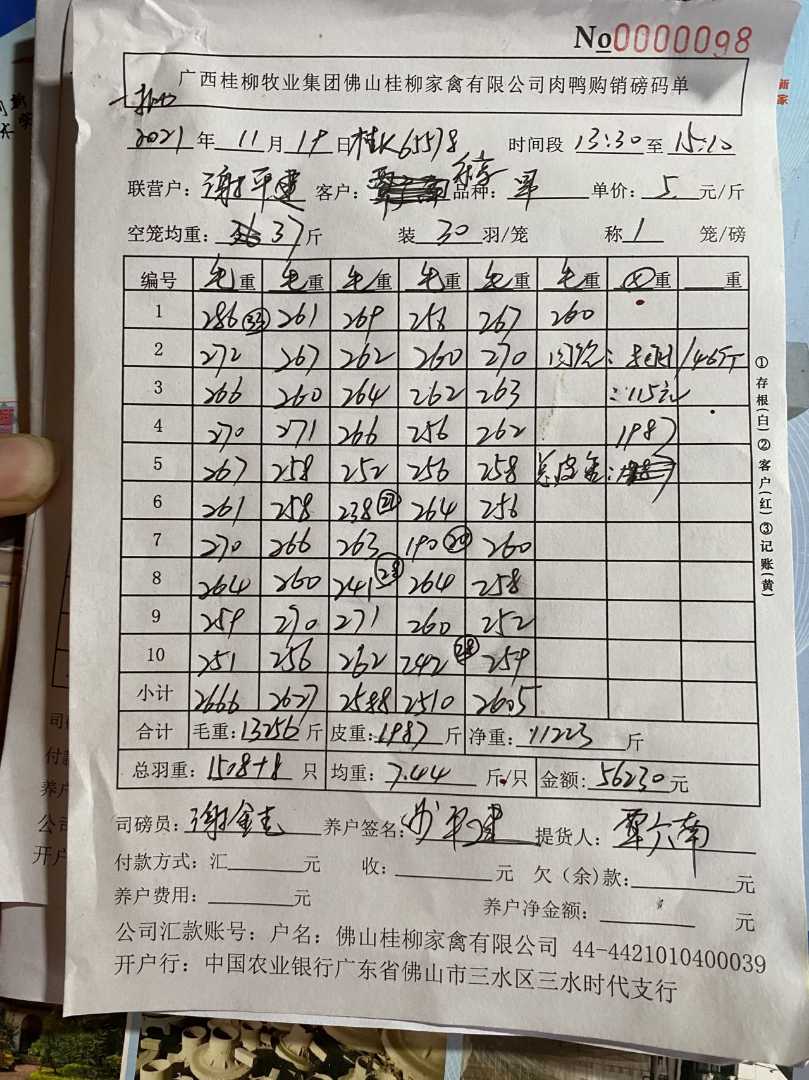 No 0000098
广西桂柳牧业集团佛山桂柳家禽有限公司肉鸭购销磅码单
2021 年 11 月 19 日 桂K65578 时间段 13:30 至 15:10
联营户: 谢平建 客户: 品种: 单价: 5 元/斤
空笼均重: 37 斤 装 30 羽/笼 称 1 笼/磅
编号 毛重 毛重 毛重 毛重 毛重 毛重 重 重
1 286 33 261 269 256 267 260
2 272 267 262 260 270 146斤
3 266 260 264 262 263 =115元
4 270 271 266 256 262 1987
5 267 258 252 256 258 总皮重:
6 261 258 238 264 256
7 270 266 263 190 20 260
8 264 260 241 28 264 258
9 259 270 271 260 252
10 251 256 262 242 28 259
小计 2666 2627 2588 2510 2605
合计 毛重: 13256 斤 皮重: 1987 斤 净重: 11223 斤
总羽重: 1508+8 只 均重: 7.44 斤/只 金额: 56230 元
司磅员: 谢金志 养户签名: 提货人: 覃六南
付款方式: 汇 元 收: 元 欠(余)款: 元
养户费用: 元 养户净金额: 元
公司汇款账号: 户名: 佛山桂柳家禽有限公司 44-4421010400039
开户行: 中国农业银行广东省佛山市三水区三水时代支行
①存根(白)②客户(红)③记账(黄)